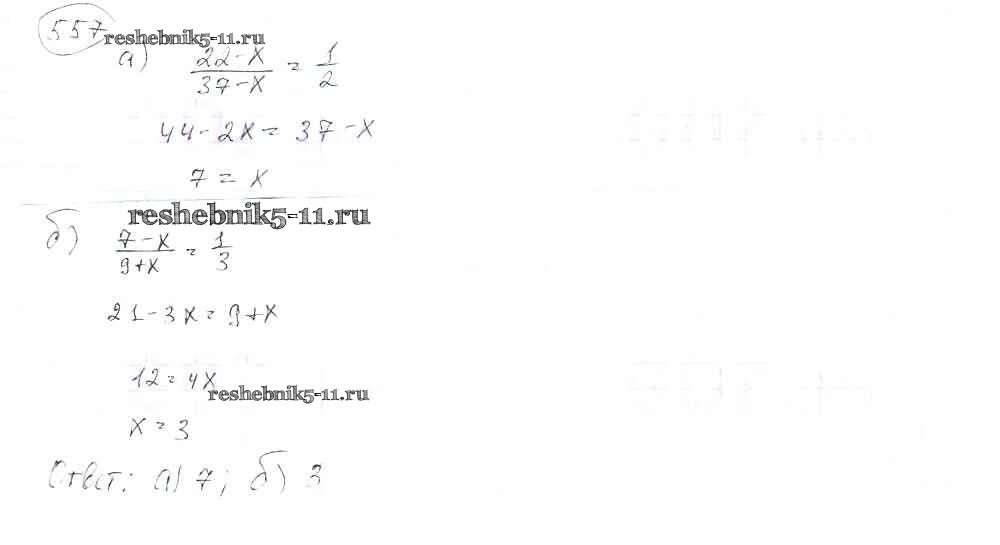 557
reshebnik5-11.ru
а) (22-x)/(37-x) = 1/2
44-2x = 37-x
7 = x
reshebnik5-11.ru
б) (7-x)/(9+x) = 1/3
21-3x = 9+x
12 = 4x
reshebnik5-11.ru
x = 3
Ответ: а) 7; б) 3